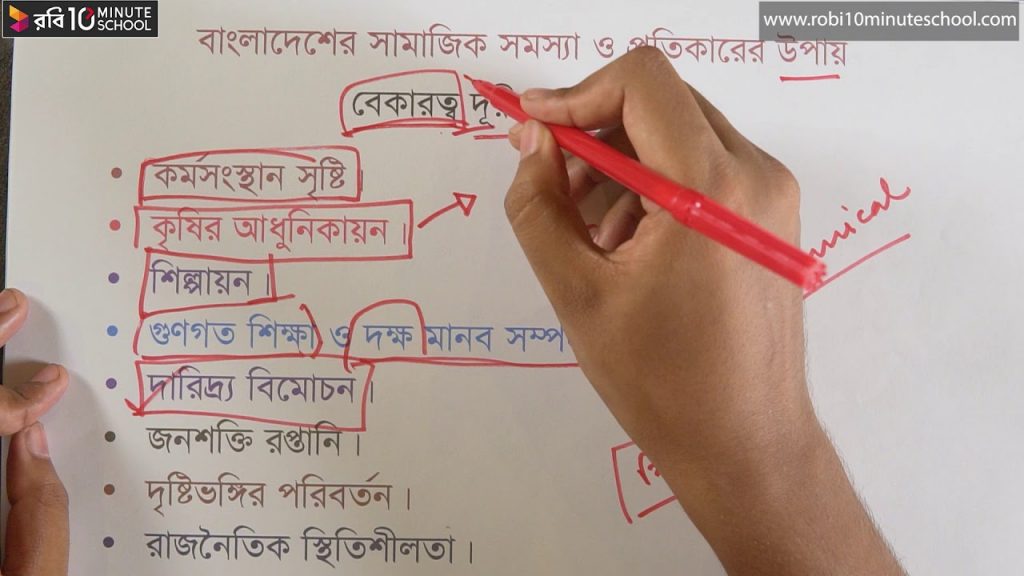 রবি 10 MINUTE SCHOOL
www.robi10minuteschool.com
বাংলাদেশের সামাজিক সমস্যা ও প্রতিকারের উপায়
বেকারত্ব
কর্মসংস্থান সৃষ্টি
কৃষির আধুনিকায়ন।
শিল্পায়ন।
গুণগত শিক্ষা ও দক্ষ মানব
দারিদ্র্য বিমোচন।
জনশক্তি রপ্তানি।
দৃষ্টিভঙ্গির পরিবর্তন।
রাজনৈতিক স্থিতিশীলতা।